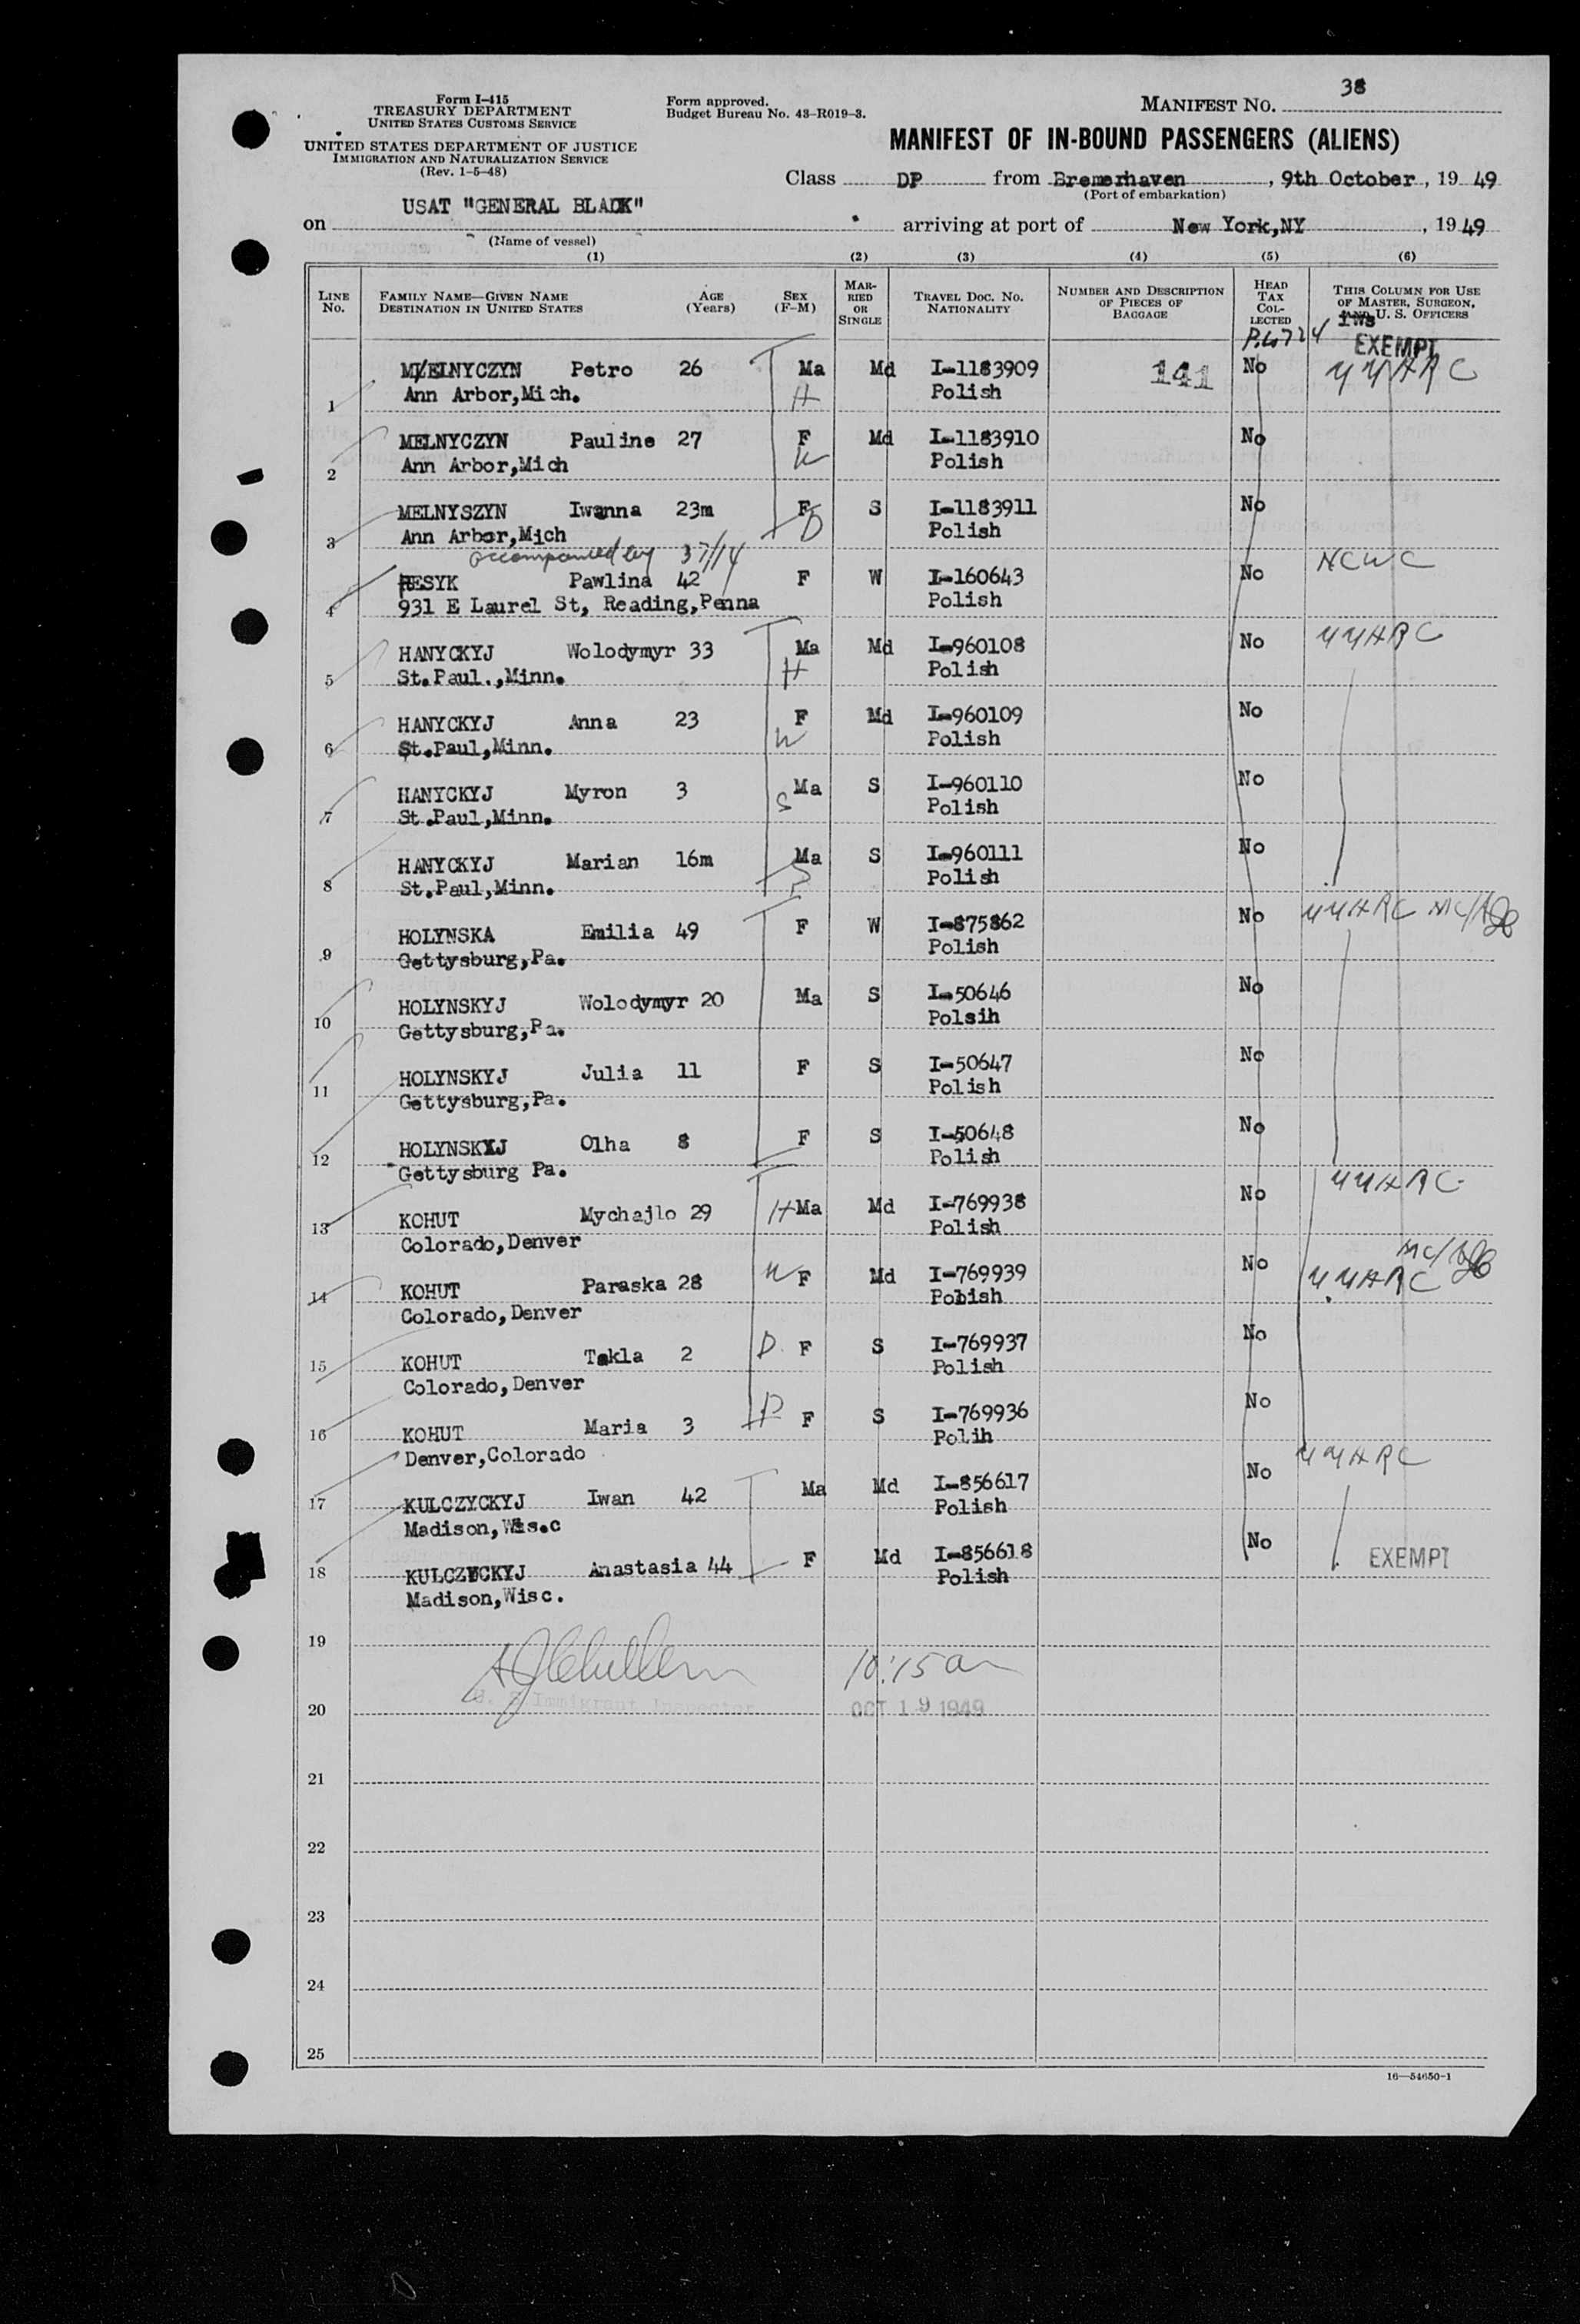 38
Form I-415
TREASURY DEPARTMENT
UNITED STATES CUSTOMS SERVICE
UNITED STATES DEPARTMENT OF JUSTICE
IMMIGRATION AND NATURALIZATION SERVICE
(Rev. 1-5-48)
Form approved.
Budget Bureau No. 43-R019-3.
MANIFEST NO.
MANIFEST OF IN-BOUND PASSENGERS (ALIENS)
Class DP from Bremerhaven, 9th October, 19 49
(Port of embarkation)
on USAT "GENERAL BLACK" arriving at port of New York,NY, 19 49
(Name of vessel)
(1) (2) (3) (4) (5) (6)
LINE No. FAMILY NAME—GIVEN NAME DESTINATION IN UNITED STATES AGE (Years) SEX (F-M) MARRIED OR SINGLE TRAVEL DOC. NO. NATIONALITY NUMBER AND DESCRIPTION OF PIECES OF BAGGAGE HEAD TAX COLLECTED THIS COLUMN FOR USE OF MASTER, SURGEON, AND U. S. OFFICERS
EXEMPT
MELNYCZYN Petro 26 Ma Md I-1183909 141 No
1 Ann Arbor,Mich. H Polish
MELNYCZYN Pauline 27 F Md I-1183910 No
2 Ann Arbor,Mich W Polish
MELNYSZYN Iwanna 23m F S I-1183911 No
3 Ann Arbor,Mich D Polish
accompanied by 37/14
RESYK Pawlina 42 F W I-160643 No NCWC
4 931 E Laurel St, Reading,Penna Polish
HANYCKYJ Wolodymyr 33 Ma Md I-960108 No
5 St.Paul.,Minn. H Polish
HANYCKYJ Anna 23 F Md I-960109 No
6 St.Paul,Minn. W Polish
HANYCKYJ Myron 3 Ma S I-960110 No
7 St.Paul,Minn. S Polish
HANYCKYJ Marian 16m Ma S I-960111 No
8 St.Paul,Minn. S Polish
HOLYNSKA Emilia 49 F W I-875862 No
9 Gettysburg,Pa. Polish
HOLYNSKYJ Wolodymyr 20 Ma S I-50646 No
10 Gettysburg,Pa. Polsih
HOLYNSKYJ Julia 11 F S I-50647 No
11 Gettysburg,Pa. Polish
HOLYNSKYJ Olha 8 F S I-50648 No
12 Gettysburg Pa. Polish
13 KOHUT Mychajlo 29 H Ma Md I-769938 No
Colorado,Denver Polish
14 KOHUT Paraska 28 W F Md I-769939 No
Colorado,Denver Polish
15 KOHUT Tekla 2 D F S I-769937 No
Colorado,Denver Polish
16 KOHUT Maria 3 D F S I-769936 No
Denver,Colorado Polih
17 KULCZYCKYJ Iwan 42 Ma Md I-856617 No
Madison,Wis.c Polish
18 KULCZYCKYJ Anastasia 44 F Md I-856618 No EXEMPT
Madison,Wisc. Polish
19
10:15 am
U. S. Immigrant Inspector
20 OCT 19 1949
21
22
23
24
25
16—54650-1